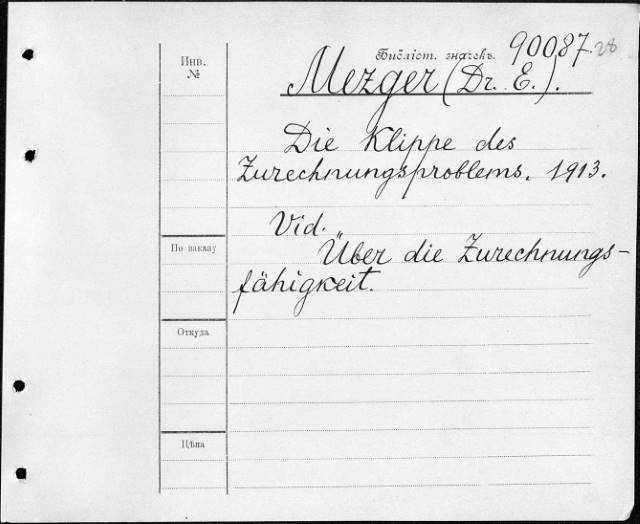 Инв.
№
Библіот. значекъ. 90087
Mezger (Dr. E.).
Die Klippe des
Zurechnungsproblems. 1913.
Vid.
Über die Zurechnungs-
fähigkeit.
По заказу
Откуда
Цѣна